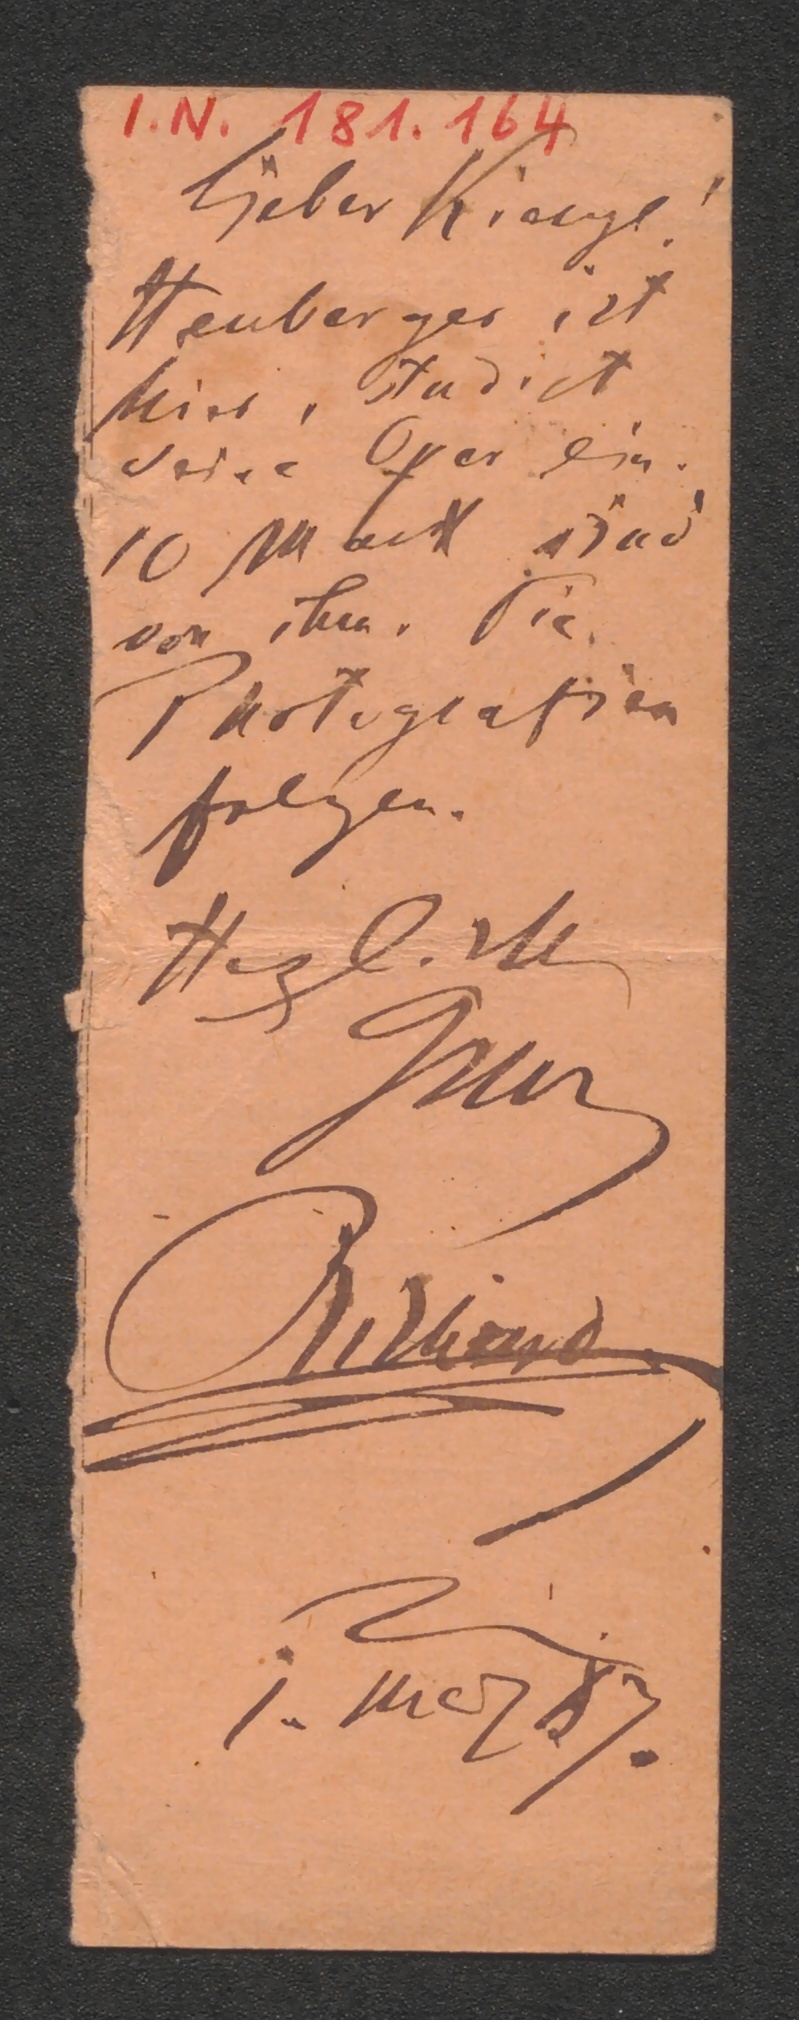 I.N. 181.164
Lieber Kienzl!
Heuberger ist
hier, studiert
seine Oper ein.
10 Mark sind
von ihm. Die
Photografien
folgen.
Herzlichst
Dein
Richard
1. März 87.